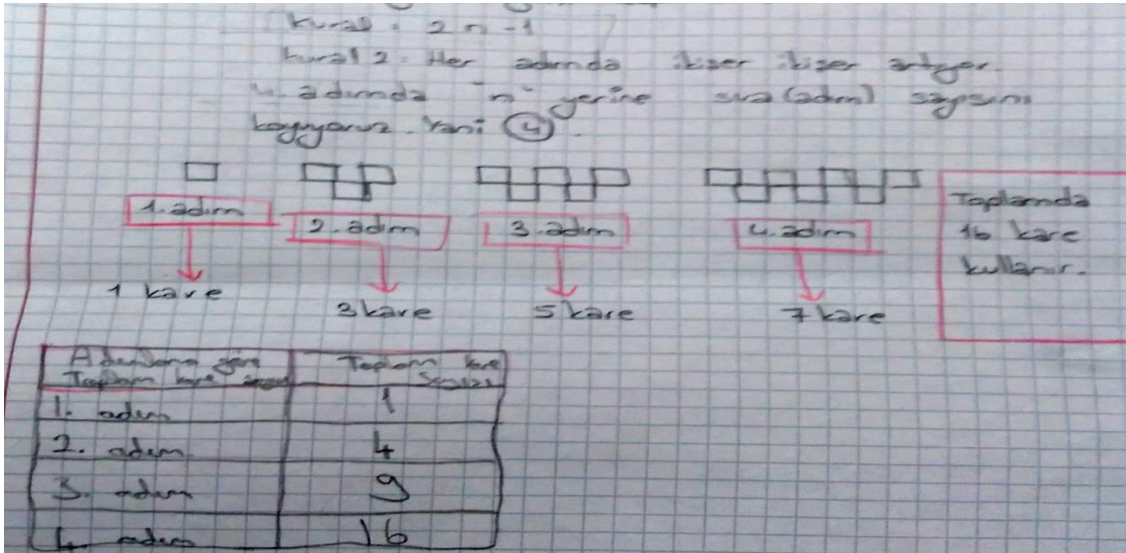 kural = 2n-1
kural 2: Her adımda ikişer ikişer artıyor.
4. adımda "n" yerine sıra (adım) sayısını
koyuyoruz. Yani 4.
1. adım
2. adım
3. adım
4. adım
1 kare
3 kare
5 kare
7 kare
Toplamda
16 kare
kullanır.
Adımlara göre Toplam kare
Toplam kare Sayısı
1. adım 1
2. adım 4
3. adım 9
4. adım 16